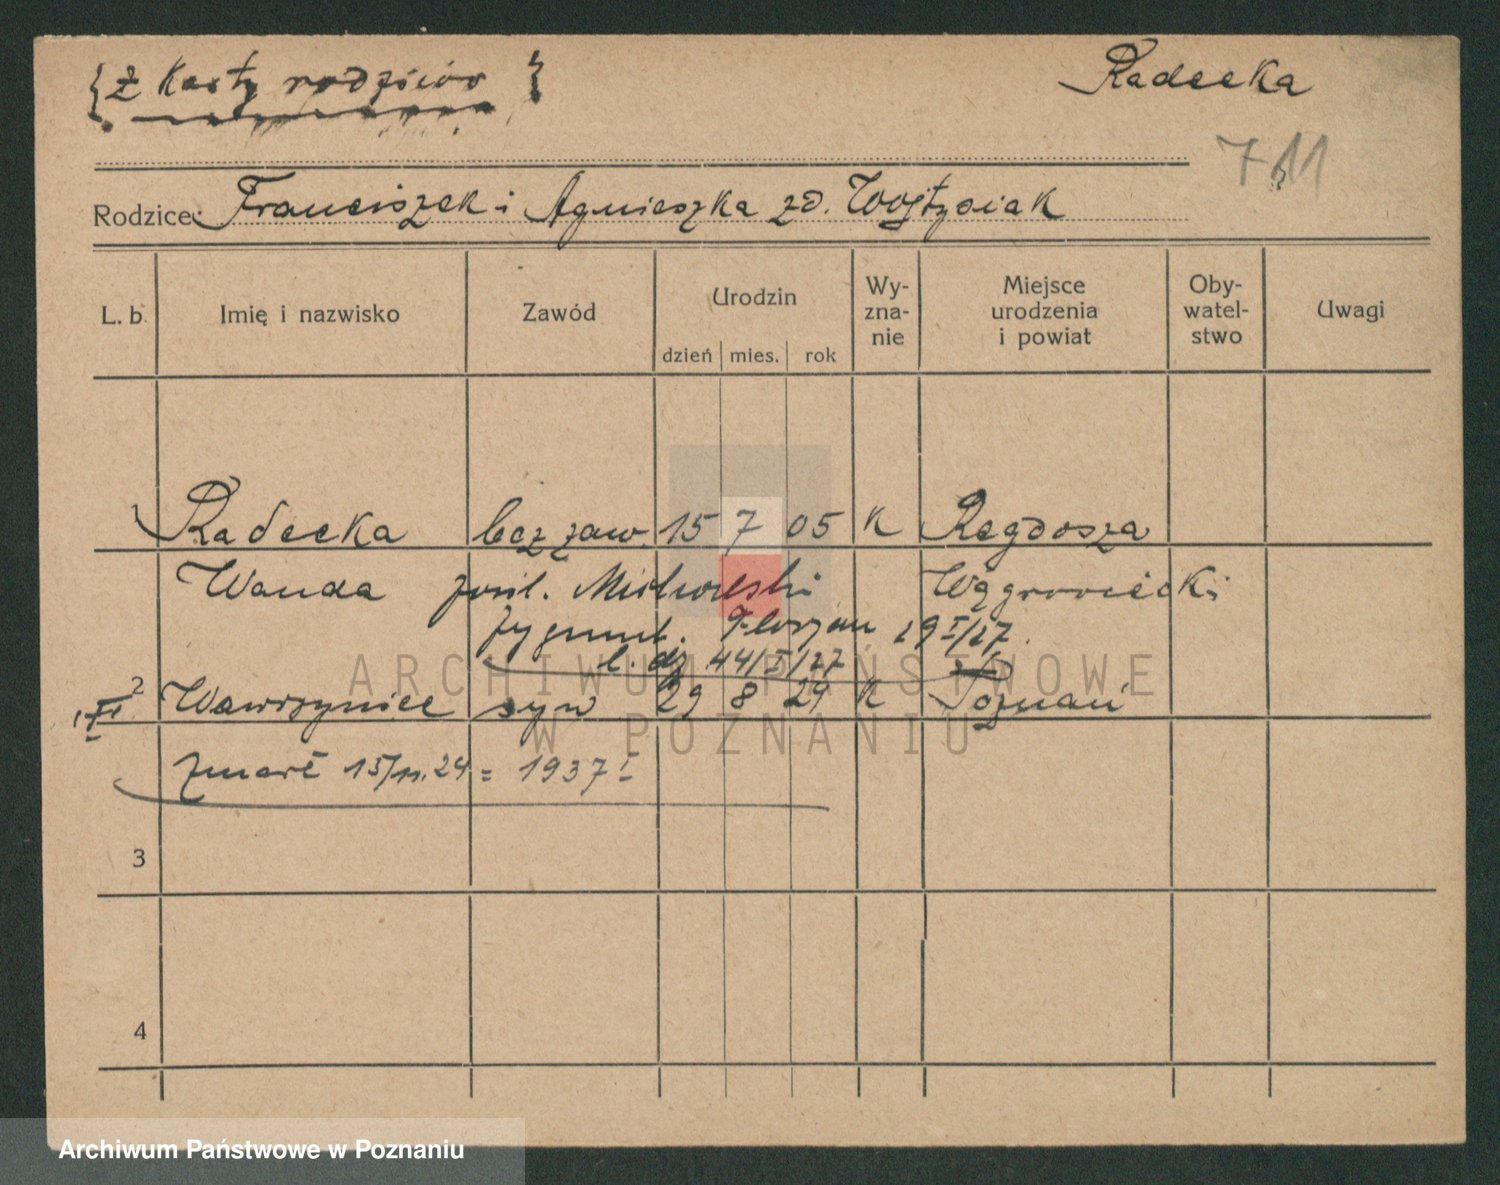 {Z Karty rodziców}
Radecka
711
Rodzice: Franciszek i Agnieszka zd. Wojtysiak
L. b. Imię i nazwisko Zawód Urodzin dzień mies. rok Wy-zna-nie Miejsce urodzenia i powiat Oby-watel-stwo Uwagi
1 Radecka bez zaw. 15 7 05 K Regdosza
Wanda Wągrowiecki
Zygmunt. Florjan 29 I/27.
l. dz 44/I/27
2 Wawrzyniec syn 29 8 29 K Poznań
zmarł 15/11.24 = 1937 I
3
4
ARCHIWUM PAŃSTWOWE
W POZNANIU
Archiwum Państwowe w Poznaniu